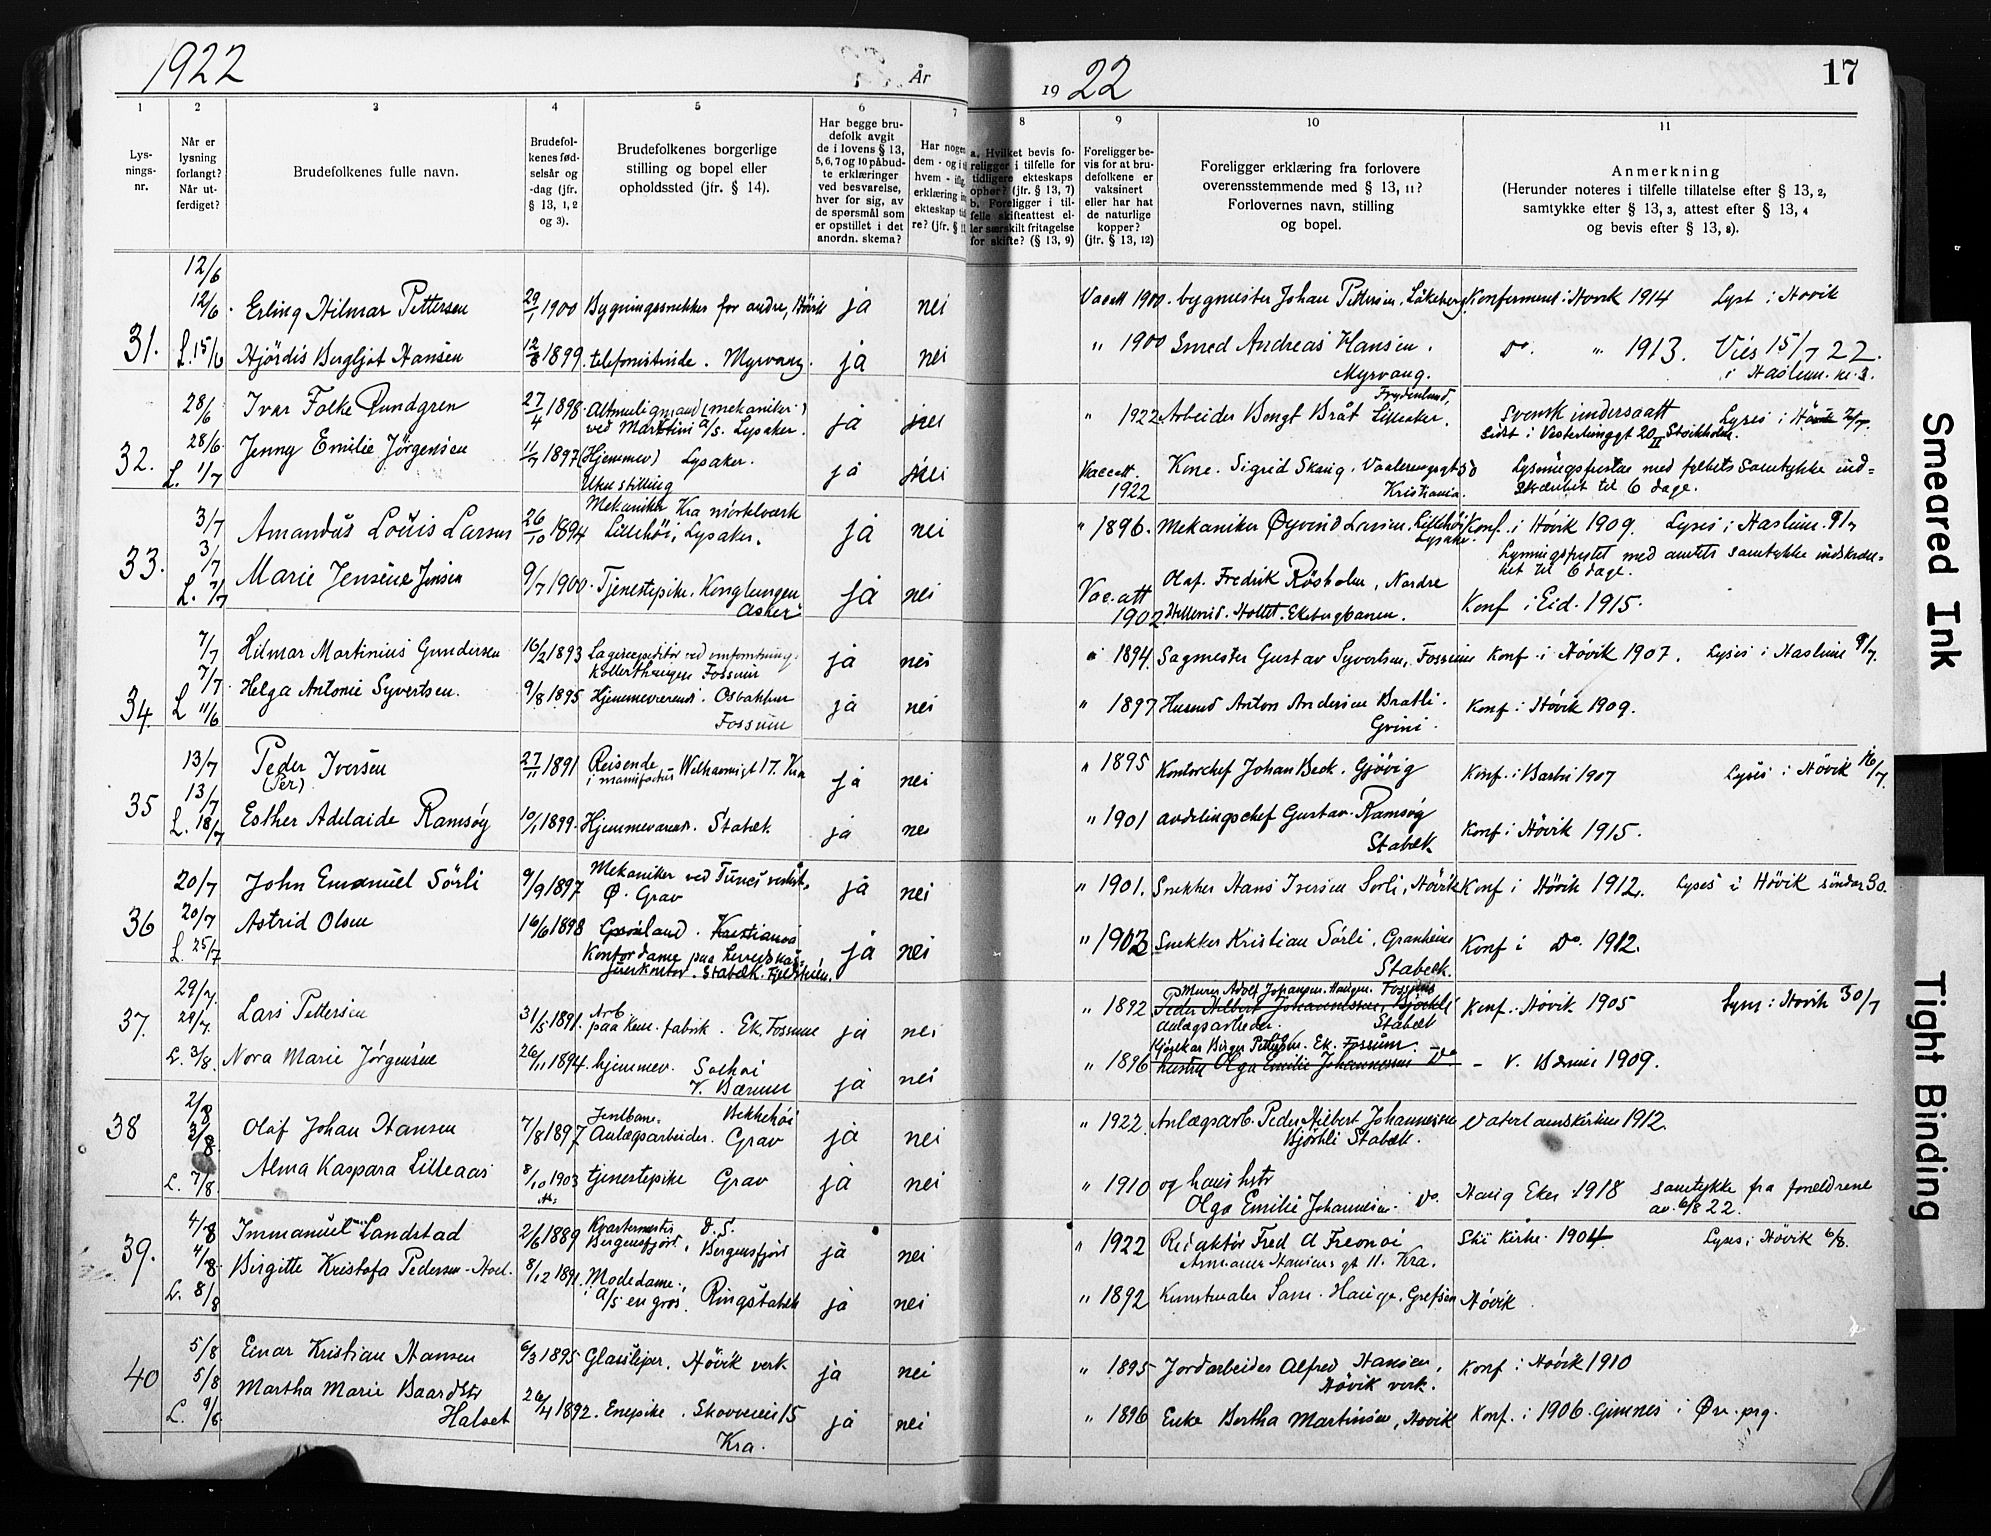 1922 År
1922 17
1 2 3 4 5 6 7
8 9 10 11
Lys-
nings-
nr.
Når er
lysning
forlangt?
Når ut-
ferdiget?
Brudefolkenes fulle navn.
Brudefol-
kenes fød-
selsår og
-dag (jfr.
§ 13, 1, 2
og 3).
Brudefolkenes borgerlige
stilling og bopel eller
opholdssted (jfr. § 14).
Har begge bru-
defolk avgit
de i lovens § 13,
5, 6, 7 og 10 påbud-
te erklæringer
ved besvarelse,
hver for sig, av
de spørsmål som
er opstillet i det
anordn. skema?
Har nogen
dem - og i
hvem - iflg.
erklæring in
ekteskap ti
re? (jfr. §
a. Hvilket bevis fo-
religger i tilfelle for
tidligere ekteskaps
ophør? (jfr. § 13, 7)
b. Foreligger i til-
felle skifteattest el-
ler særskilt fritagelse
for skifte? (§ 13, 9)
Foreligger be-
vis for at bru-
defolkene er
vaksinert
eller har hat
de naturlige
kopper?
(jfr. § 13, 12)
Foreligger erklæring fra forlovere
overensstemmende med § 13, 11?
Forlovernes navn, stilling
og bopel.
Anmerkning
(Herunder noteres i tilfelle tillatelse efter § 13, 2,
samtykke efter § 13, 3, attest efter § 13, 4
og bevis efter § 13, 8).
12/6
12/6 Erling Hilmar Pettersen 29/1 1900 Bygningssnekker for andre, Høvik ja nei Vacatt 1900. bygmester Johan Pettersen, Konfirment i Høvik 1914 Lyst i Høvik
31. L. 15/6 Hjördis Bergljot Hansen 12/8 1899. telefonistinde. Myrvang. ja nei " 1900 Smed Andreas Hansen. Do. " 1913. Vies 15/7 22.
Myrvang. i Haslum. kl. 3.
28/6 Ivar Folke Rundgren 27/4 1898. Altmuligmand (mekaniker) ja nei " 1922 Arbeider Bengt Bråt Frydenlund, Lilleaker. Svensk undersaatt Lyses i Høvik 2/7.
ved Martini A/S. Lysaker.
32. 28/6 Jenny Emilie Jørgensen 11/7 1897 (Hjemmev) Lysaker. ja nei Vaccatt. 1922 Kone. Sigrid Skaug. Kristiania. Lysningsfristen med fylkets samtykke ind-
L. 1/7 Uten stilling skrænket til 6 dage.
33. 3/7 Amandus Louis Larsen 26/10 1894 Mekaniker Kra mörtelværk ja nei " 1896. Mekaniker Øyvind Larsen, Lillehöi Lysaker Konf. i Hövik 1909. Lyses i Haslum 9/7
Lillehöi, Lysaker.
3/7 Marie Jensine Jensen 9/7 1900. Tjenestepike. Konglungen ja nei Vac. att 1902. Olaf Fredrik Rösholm, Nordre Konf i Eid. 1915.
L. 7/7 Asker Ekebergbanen.
34. 7/7 Hilmar Martinius Gundersen 16/2 1893 ja nei " 1894. Sagmester Gustav Syvertsen, Fossum Konf. i Hövik 1907. Lyses i Haslum 9/7.
Fossum
7/7 Helga Antonie Syvertsen. 9/8 1895 Hjemmeværend. Osbakken ja nei " 1897 Anton Andersen Bratli. Konf. i Hövik 1909.
L 11/6 Fossum Grini.
35 13/7 Peder Iversen 27/11 1891 Reisende ja nei " 1895 Kontorchef Johan Beck. Gjövig Konf. i Barbu 1907 Lyses i Hövik 16/7.
(Per) i manufactur Welhavensgt 17. Kra
13/7 Esther Adelaide Ramsøy 10/1 1899. Hjemmeværend. Stabæk ja nei " 1901 avdelingschef Gustav Ramsøy Konf i Hövik 1915.
L. 18/7 Stabæk
36 20/7 John Emanuel Sörli 9/9 1897 Mekaniker ved Tunes verkst. ja nei " 1901. Snekker Hans Iversen Sörli, Hövik Konf i Hövik 1912. Lyses i Hövik söndag 30.
Ø. Grav
20/7 Astrid Olsen 16/6 1898 Grönland. Kristiania ja nei " 1903 Snekker Kristian Sörli. Granheim Konf i Do. 1912.
L. 25/7 Kontordame paa Stabæk. Stabæk.
37. 29/7. Lars Pettersen 31/5 1891. Arb. ja nei " 1892 Murer Adolf Johansen. Haugen. Fossum Konf. i Høvik 1905 Lyses i Høvik 30/7
paa Kem. fabrik. Ek. Fossum Peder Hilbert Johannessen, Bjørkli
29/7. anlægsarbeider. Stabæk
L. 3/8. Nora Marie Jørgensen 26/11 1894. hjemmev. Solhöi ja nei " 1896 Birger Pettersen. Ek. Fossum. - V. Bærum 1909.
V. Bærum hustru Olga Emilie Johannessen Do
38 2/8 Olaf Johan Hansen 7/8 1897 Jernbane. Bekkehöi ja nei " 1922. Anlægsarb. Peder Hilbert Johannessen Vaterlandskirken 1912.
3/8. Anlægsarbeider. Grav Bjørkli Stabæk.
L. 7/8. Alma Kaspara Lilleaas 8/10 1903 tjenestepike Grav ja nei " 1910 og hans hstr Haug Eker 1918 samtykke fra foreldrene
Olga Emilie Johannessen. Do. av. 6/8 22.
39. 4/8 Immanuel Landstad 2/6 1889 Kvartermester D.S. ja nei " 1922 Redaktör Fred Ski kirke 1904. Lyses i Hövik 6/8.
Bergensfjord, Bergensfjord gt 11. Kra.
4/8. Birgitte Kristofa Pedersen 8/12 1891. Modedame. ja nei " 1892 Kunstmaler Sam. Hauge. Grefsen Hövik
L. 8/8 i A/S en gros. Ringstabæk
40 5/8 Einar Kristian Hansen 6/3 1895 Glassliper, Hövik verk ja nei " 1895 Jordarbeider Alfred Hansen, Konf. i Hövik 1910
Hövik verk.
5/8 Martha Marie Baardstr 26/4 1892. Enepike. Skovveien 15 ja nei " 1896 Enke Bertha Martinsen, Hovik Konf. i 1906. Gimnes i Øre prg.
L. 9/8 Halset Kra.
Smeared Ink
Tight Binding